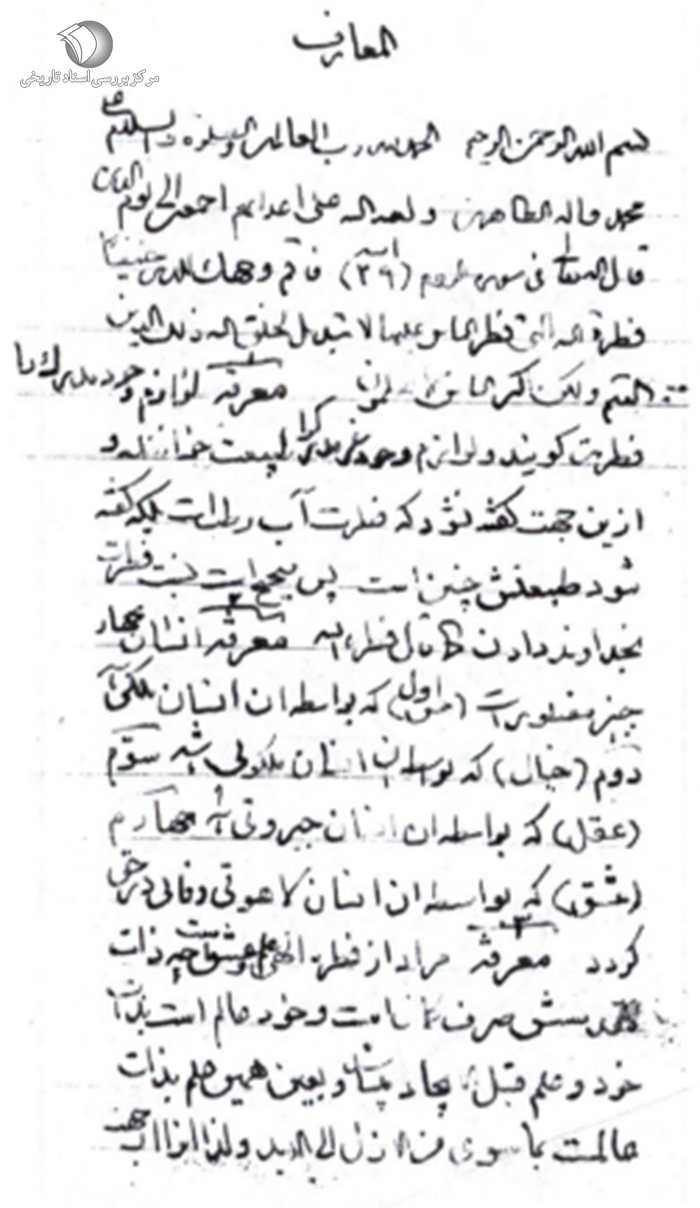 المعارف
مرکز بررسی اسناد تاریخی
بسم الله الرحمن الرحیم الحمدلله رب العالمین والصلوة والسلام علی
محمد واله الطاهرین ولعنة الله علی اعدائهم اجمعین الی یوم الدین
قال الله تعالی فی سوره روم (آیه ۲۹) فاقم وجهک للدین حنیفا
فطرة الله التی فطر الناس علیها لا تبدیل لخلق الله ذلک الدین
القیم ولکن اکثر الناس لا یعلمون معرفة ۱ لوازم وجود مدرک را
فطرت کویند ولوازم وجود غیر مدرک را طبیعت خوانند و
ازین جهت کفته نشود که فطرت آب رطب است بلکه کفته
شود طبیعتش چنین است پس صحیح است نسبت فطرت
بخداوند دادن کما قال فطرة الله معرفة ۲ انسان بچهار
چیز مفطور است (حس اول) که بواسطه ان انسان ملکی
دوم (خیال) که بواسطه ان انسان ملکوتی است سوم
(عقل) که بواسطه ان انسان جبروتی چهارم
(عشق) که بواسطه ان انسان لاهوتی وفانی در حق
کردد معرفة ۳ مراد از فطرت الهی علم وعشق است چه ذات
صرف وخود عالم است بذات
خود وعلم قبل ایجاد وبعین همین علم بذات
عالمست بما سوی من الازل الی الابد ولذا